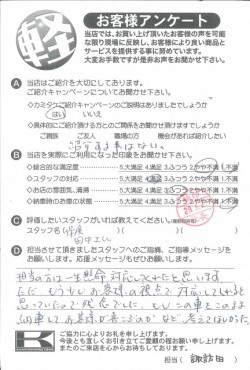 軽
お客様アンケート
当店では、お買い上げ頂いたお客様の声を可能
な限り現場に反映し、お客様により良い商品と
サービスを提供する事に努めています。
大変お手数ですが是非お声をお聞かせ下さい。
A 当店はご紹介を大切にしております。
ご紹介キャンペーンについてお聞かせ下さい。
◇カミタケご紹介キャンペーンのご説明はありましたでしょうか
はい いいえ
◇具体的にご紹介頂ける方とのご関係をお聞かせ頂けますでしょうか
ご親族 ご友人 職場の方 機会があれば紹介したい
B 当店を実際にご利用になった印象をお聞かせ下さい。
◇総合的な満足度 5.大満足 4.満足 3.ふつう 2.やや不満 1.不満
◇スタッフの対応 5.大満足 4.満足 3.ふつう 2.やや不満 1.不満
◇お店の雰囲気、清掃 5.大満足 4.満足 3.ふつう 2.やや不満 1.不満
◇納車時のお車の状態 5.大満足 4.満足 3.ふつう 2.やや不満 1.不満
C 評価したいスタッフがいれば教えてください。
スタッフ名
D 担当させて頂きましたスタッフへのご指摘、ご指導、応援メッセージを
お願いします。ご応援メッセージもぜひお願いします。
担当の方は一生懸命対応してくれたと思います
ただ、もう少しお客様の視点で対応してくれると
思っていたので残念でした。もし、この車をこのまま
納車したらお客様が考えてほしかった。
K
ご協力に心よりお礼を申し上げます。
今後とも宜しくお引き立てご愛顧の程お願い申し上げます。
またのご来店を心からお待ちしております。
担当（ 諏訪田 ）